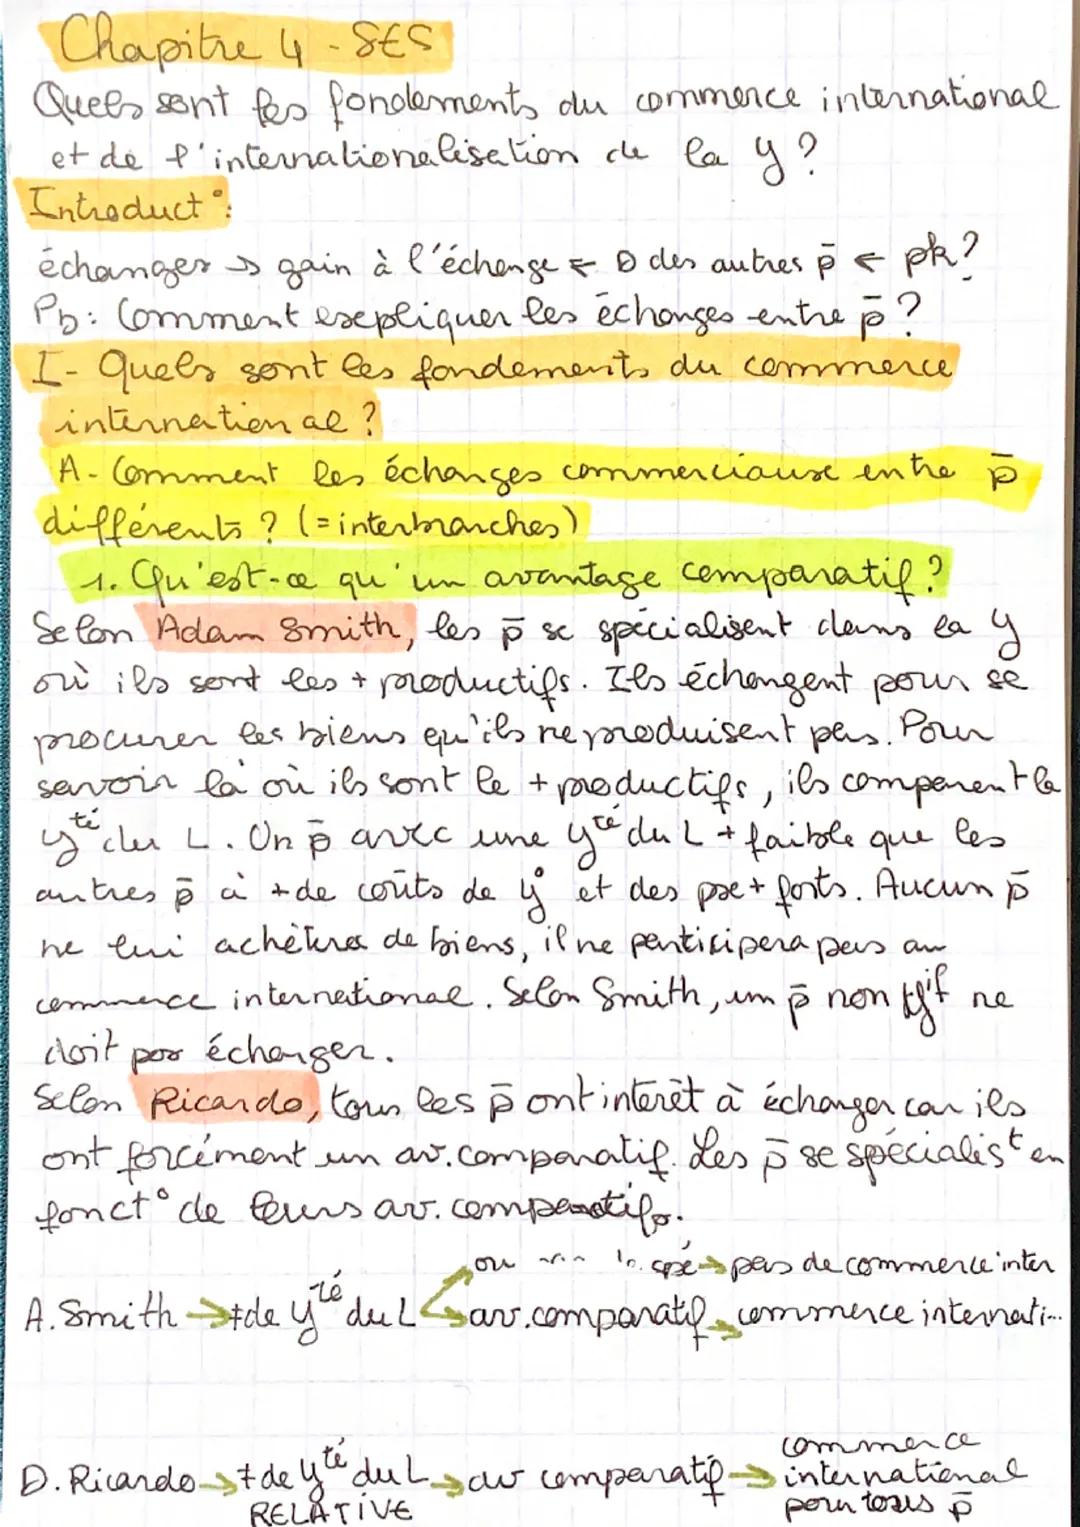 Chapitre 4 - SES
Quels sont les fondements du commerce international
et de l'internationalisation de la y ?
Introduct°:
échanger → gain à l'échange ← D des autres p̄ ← pk ?
Pb: Comment expliquer les échanges entre p̄ ?
I- Quels sont les fondements du commerce
international ?
A- Comment les échanges commerciaux entre p̄
différents ? (= interbranches)
1. Qu'est-ce qu'un avantage comparatif ?
Selon Adam Smith, les p̄ se spécialisent dans la y
où ils sont les + productifs. Ils échangent pour se
procurer les biens qu'ils ne produisent pas. Pour
savoir là où ils sont le + productifs, ils comparent la
yté du L. Un p̄ avec une yté du L + faible que les
autres p̄ à + de coûts de y° et des px + forts. Aucun p̄
ne lui achètera de biens, il ne participera pas au
commerce international. Selon Smith, un p̄ non yif ne
doit pas échanger.
Selon Ricardo, tous les p̄ ont intérêt à échanger car ils
ont forcément un av. comparatif. Les p̄ se spécialist en
fonct° de leurs av. comparatifs.
ou spé → pas de commerce inter
A. Smith → ≠ de yté du L → av. comparatif → commerce internati...
D. Ricardo → ≠ de yté du L → av comparatif → commerce
RELATIVE international
pour tous p̄